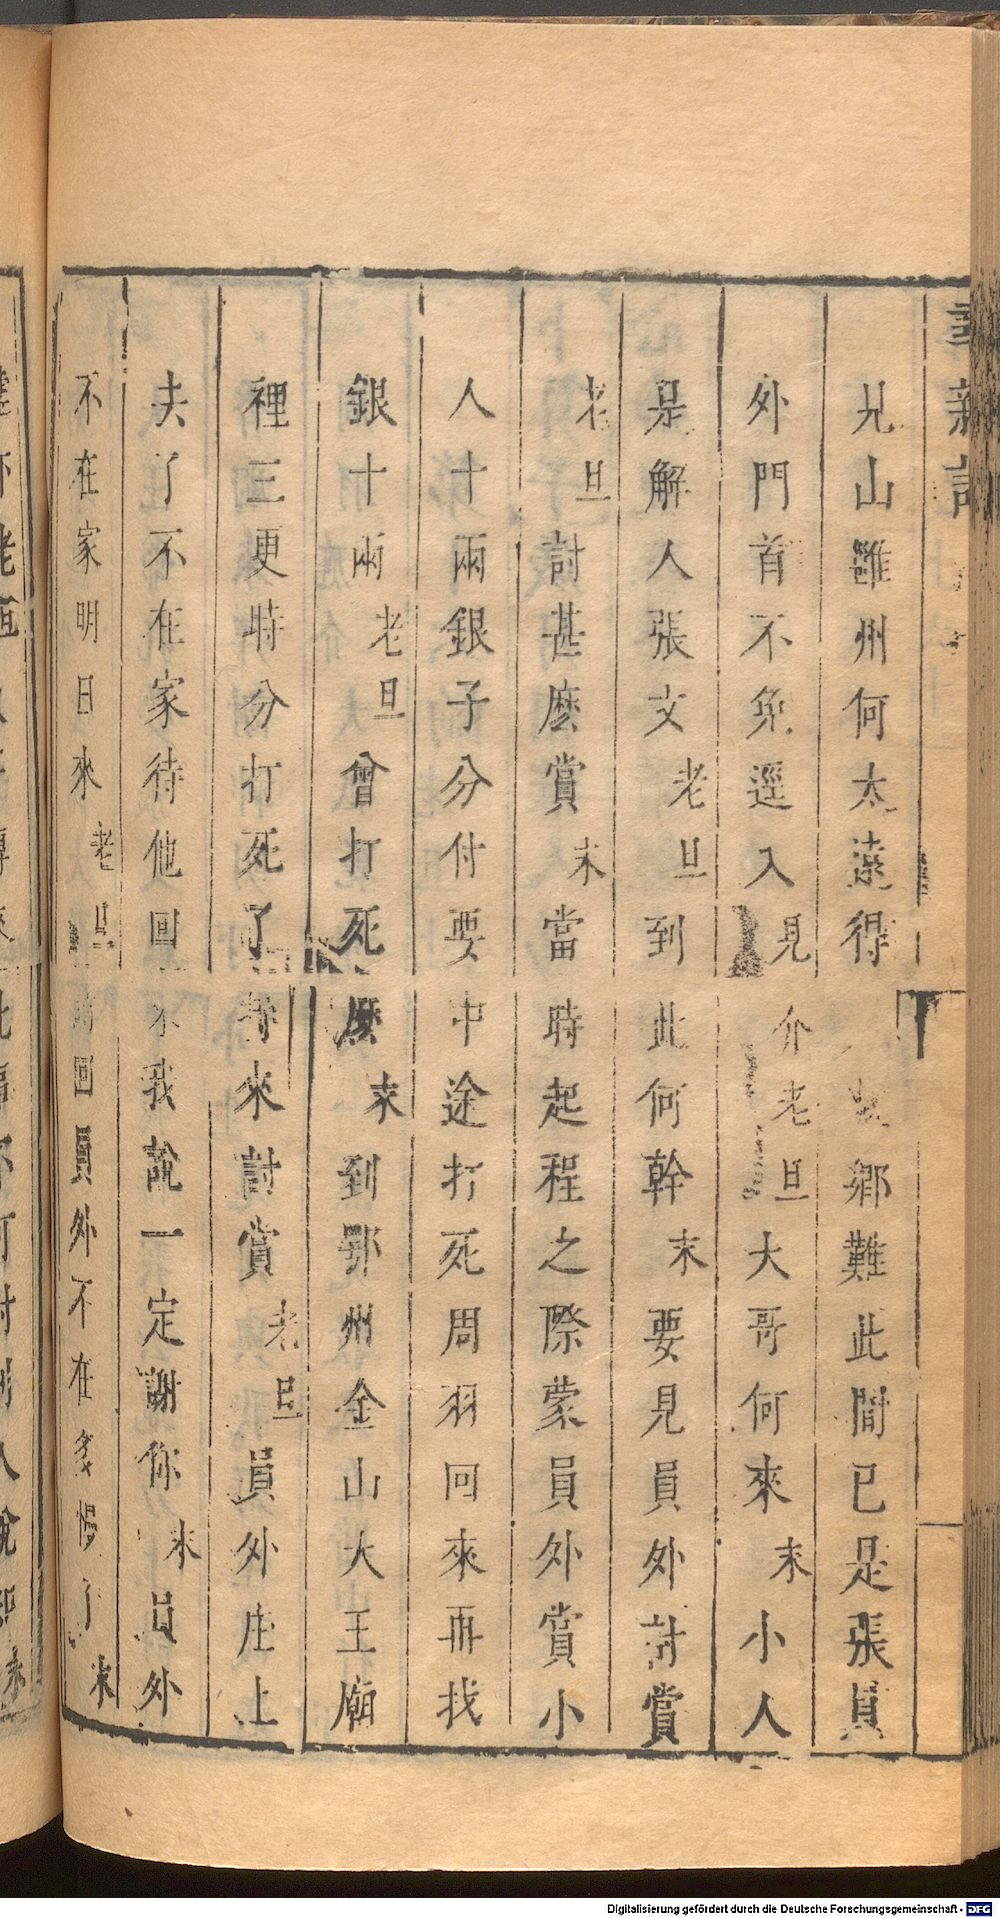 新記
見山雖州何太遠得鄉難此間已是張員
外門首不免逕入見介老旦大哥何來末小人
是解人張文老旦到此何幹末要見員外討賞
老旦討甚麽賞末當時起程之際蒙員外賞小
人十兩銀子分付要中途打死周羽回來再找
銀十兩老旦曾打死麽末到鄂州金山大王廟
裡三更時分打死了特來討賞老旦員外庄上
去了不在家待他回來我說一定謝你末員外
不在家明日來老旦回員外不在多慢了末
Digitalisierung gefördert durch die Deutsche Forschungsgemeinschaft - DFG